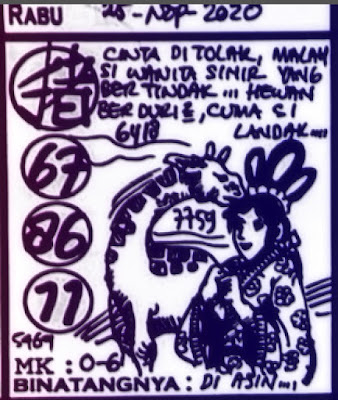 RABU 25-NOP-2020
CINTA DI TOLAK, MALAH
SI WANITA SINIR YANG
BERTINDAK ... HEWAN
BERDURI², CUMA SI
6418 LANDAK....
67
7759
86
77
5469
MK : 0-6
BINATANGNYA : DI ASIN...,